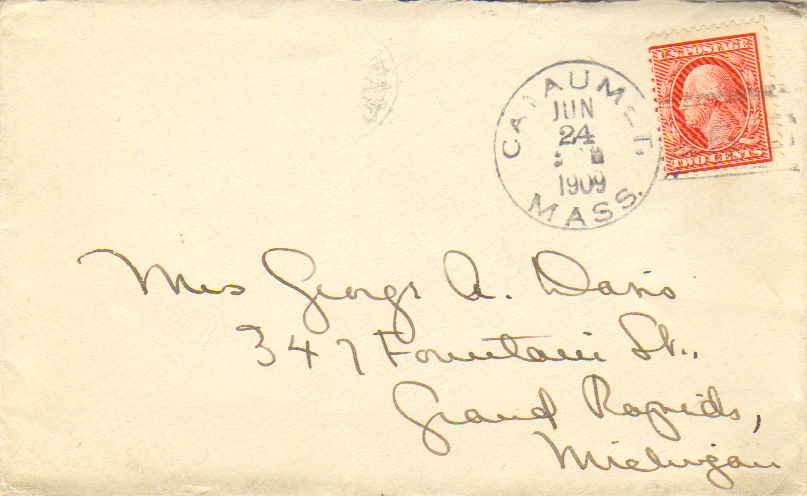 U.S. POSTAGE
TWO CENTS
CATAUMET.
JUN
24
1909
MASS.
Mrs George A. Davis
347 Fountain St.,
Grand Rapids,
Michigan